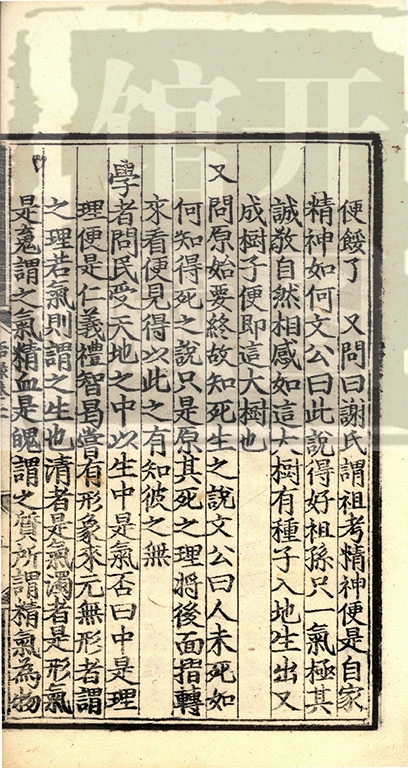 便餒了　又問曰謝氏謂祖考精神便是自家
精神如何文公曰此說得好祖孫只一氣極其
誠敬自然相感如這大樹有種子入地生出又
成樹子便即這大樹也
又問原始要終故知死生之說文公曰人未死如
何知得死之說只是原其死之理將後面指轉
來看便見得以此之有知彼之無
學者問民受天地之中以生中是氣否曰中是理
理便是仁義禮智曷嘗有形象來元無形者謂
之理若氣則謂之生也清者是氣濁者是形氣
是䰟謂之氣精血是魄謂之質所謂精氣為物